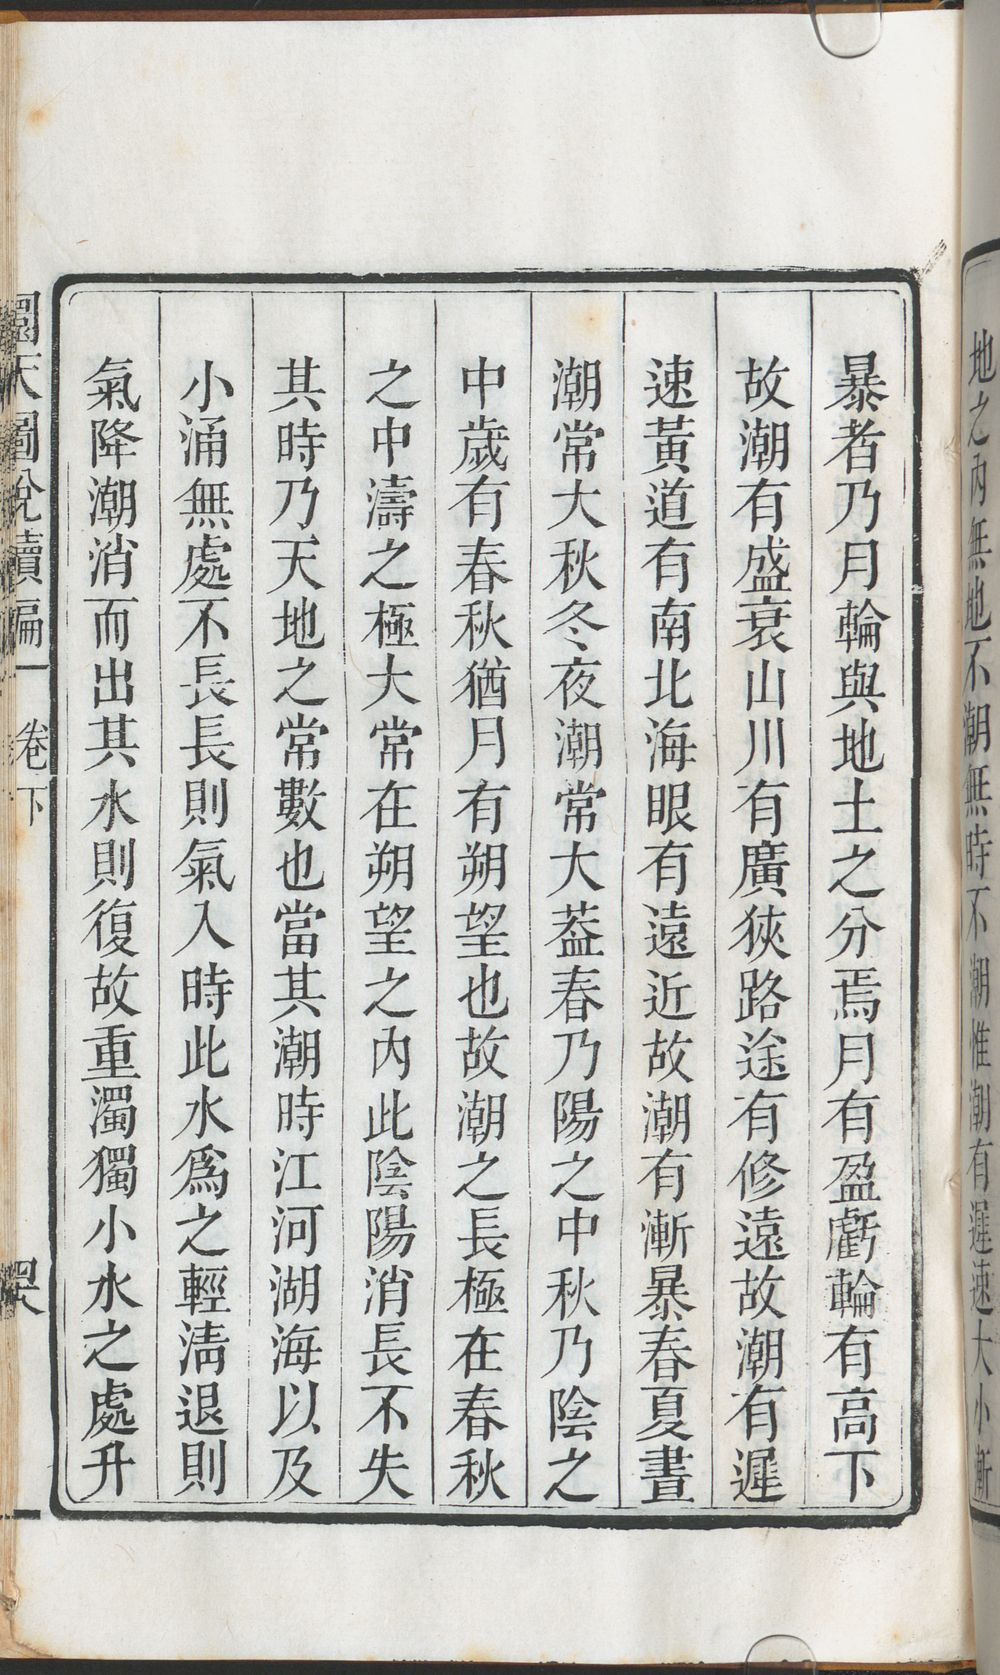 地之內無地不潮無時不潮惟潮有遲速大小漸
暴者乃月輪與地土之分焉月有盈虧輪有高下
故潮有盛衰山川有廣狹路途有修遠故潮有遲
速黃道有南北海眼有遠近故潮有漸暴春夏晝
潮常大秋冬夜潮常大葢春乃陽之中秋乃陰之
中歲有春秋猶月有朔望也故潮之長極在春秋
之中濤之極大常在朔望之內此陰陽消長不失
其時乃天地之常數也當其潮時江河湖海以及
小涌無處不長長則氣入時此水爲之輕淸退則
氣降潮消而出其水則復故重濁獨小水之處升
圜天圖說續編 卷下